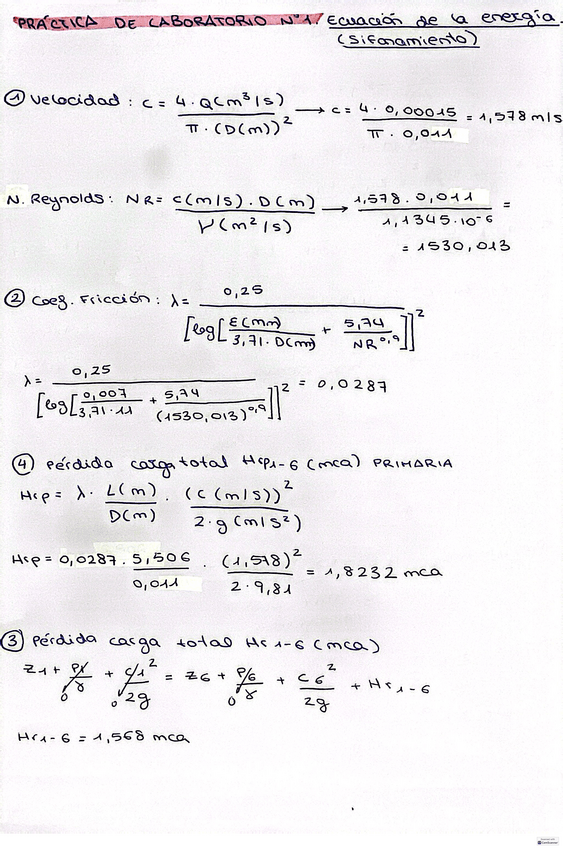 PRÁCTICA DE LABORATORIO Nº1. Ecuación de la energía.
(Sifonamiento)
① Velocidad: c = 4·Q(m³/s) / π·(D(m))² → c = 4·0,00015 / π·0,011 = 1,578 m/s
N. Reynolds: NR = c(m/s)·D(m) / ν(m²/s) → 1,578·0,011 / 1,1345·10⁻⁶ =
= 1530,013
② Coeg. Fricción: λ = 0,25 / [log[E(mm) / 3,71·D(mm) + 5,74 / NR^0,9]]²
λ = 0,25 / [log[0,007 / 3,71·11 + 5,74 / (1530,013)^0,9]]² = 0,0287
④ Pérdida carga total Hcp1-6 (mca) PRIMARIA
Hcp = λ · L(m) / D(m) · (c(m/s))² / 2·g(m/s²)
Hcp = 0,0287 · 5,506 / 0,011 · (1,578)² / 2·9,81 = 1,8232 mca
③ Pérdida carga total Hc1-6 (mca)
Z1 + P1/γ 0 + c1²/2g 0 = Z6 + P6/γ 0 + C6²/2g + Hc1-6
Hc1-6 = 1,568 mca